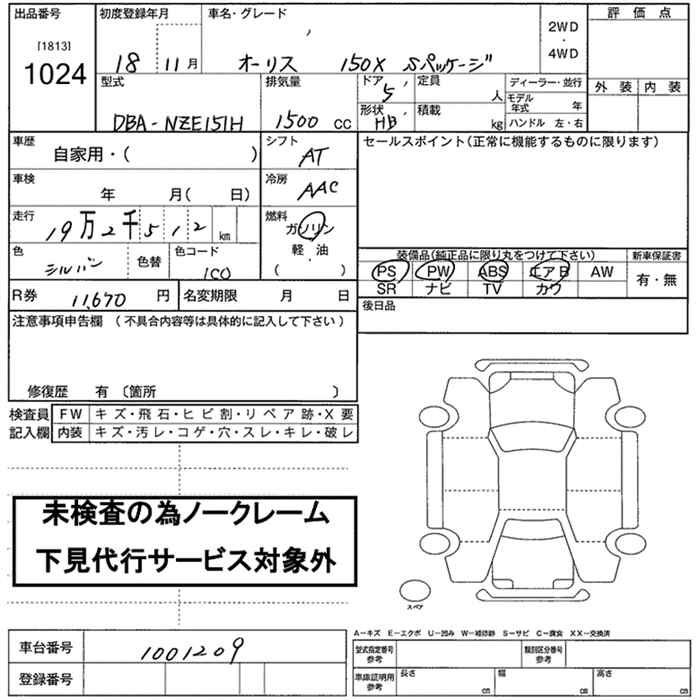 出品番号
［1813］
1024
初度登録年月
18 年 11 月
車名・グレード
オーリス 150X Sパッケージ
2WD
・
4WD
評価点
外装 内装
型式
DBA-NZE151H
排気量
1500 cc
ドア
5
形状
HB
定員
人
積載
kg
ディーラー・並行
モデル年式 年
ハンドル 左・右
車歴
自家用・（ ）
シフト
AT
セールスポイント（正常に機能するものに限ります）
車検
年 月（ 日）
冷房
AAC
走行
19万2千512 km
燃料
ガソリン
軽・油
（ ・ ）
色
シルバー
色替
色コード
1C0
装備品（純正品に限り丸をつけて下さい）
PS PW ABS エアB AW
SR ナビ TV カワ
新車保証書
有・無
R券 11,670 円
名変期限 月 日
後日品
注意事項申告欄（不具合内容等は具体的に記入して下さい）
修復歴 有〔箇所 〕
検査員 FW キズ・飛石・ヒビ割・リペア跡・X要
記入欄 内装 キズ・汚レ・コゲ・穴・スレ・キレ・破レ
未検査の為ノークレーム
下見代行サービス対象外
スペア
A－キズ E－エクボ U－凹み W－補修跡 S－サビ C－腐食 XX－交換済
車台番号 1001209
登録番号
型式指定番号
参考
類別区分番号
参考
車庫証明用
参考
長さ cm
幅 cm
高さ cm